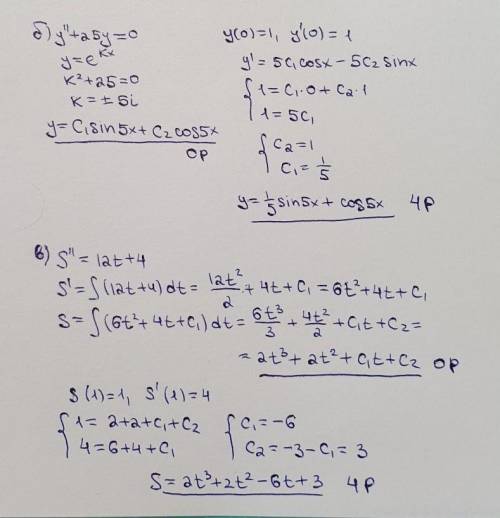 б) y''+25y=0
y=e^{kx}
k²+25=0
k=±5i
y=C₁sin5x+C₂cos5x
ОР
y(0)=1, y'(0)=1
y'=5C₁cosx-5C₂sinx
{1=C₁·0+C₂·1
1=5C₁
{C₂=1
C₁=1/5
y=1/5 sin5x+cos5x ЧР
в) S''=12t+4
S'=∫(12t+4)dt=12t²/2+4t+C₁=6t²+4t+C₁
S=∫(6t²+4t+C₁)dt=6t³/3+4t²/2+C₁t+C₂=
=2t³+2t²+C₁t+C₂ ОР
S(1)=1, S'(1)=4
{1=2+2+C₁+C₂
4=6+4+C₁
{C₁=-6
C₂=-3-C₁=3
S=2t³+2t²-6t+3 ЧР